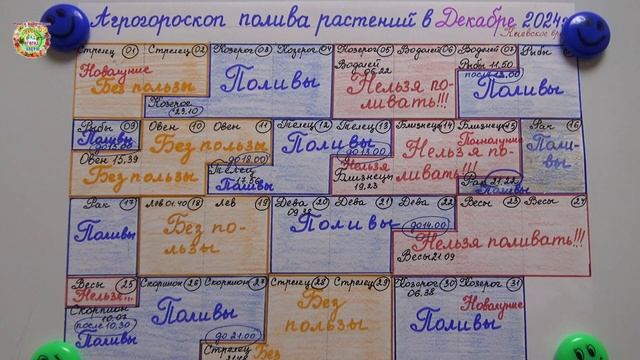 Агрогороскоп полива растений в Декабре 2024г
Киевское вр
Стрелец 01 Стрелец 02 Козерог 03 Козерог 04 Козерог 05 Водолей 06 Водолей 07 Рыбы
Новолуние
Без пользы
Козерог
23.10
Поливы
Водолей
06.22
Нельзя по-
ливать!!!
Рыбы 11.50
после 12.00
Поливы
Рыбы 09 Овен 10 Овен 11 Телец 12 Телец 13 Близнецы 14 Близнецы 15 Рак 16
Поливы
Овен 15.39
Без пользы
Без пользы
до 18.00
Телец
Поливы
Поливы
до 19.00
Нельзя
Близнецы
19.23
Нельзя по-
ливать!!!
Полнолуние
Рак 21.22
Поливы
Поли-
вы
Рак 17 Лев 01.40 18 Лев 19 Дева 20 Дева 21 Дева 22 Весы 23 Весы 24
Поливы
Без по-
льзы
Поливы
до 14.00
Весы
Нельзя поливать!!!
Весы 25 Скорпион 26 Скорпион 27 Стрелец 28 Стрелец 29 Козерог 30 Козерог 31
Нельзя...
Скорпион
после 10.30
Поливы
Поливы
до 21.00
Стрелец
Без
Без
пользы
06.38
Новолуние
Поливы